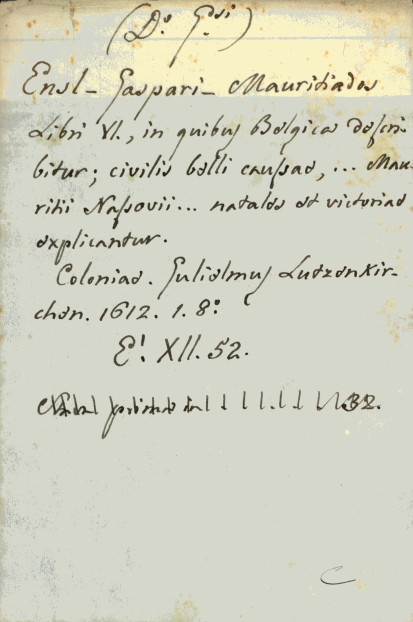 (D.º G.si)
Ensl- Gaspari- Mauritiados
Libri VI., in quibus Belgica descri-
bitur; civilis belli caussae, ... Mau-
ritii Nassovii... natales et victoriae
explicantur.
Coloniae. Gulielmus Lutzenkir-
chen. 1612. 1. 8º
E! XII. 52.
32.
C